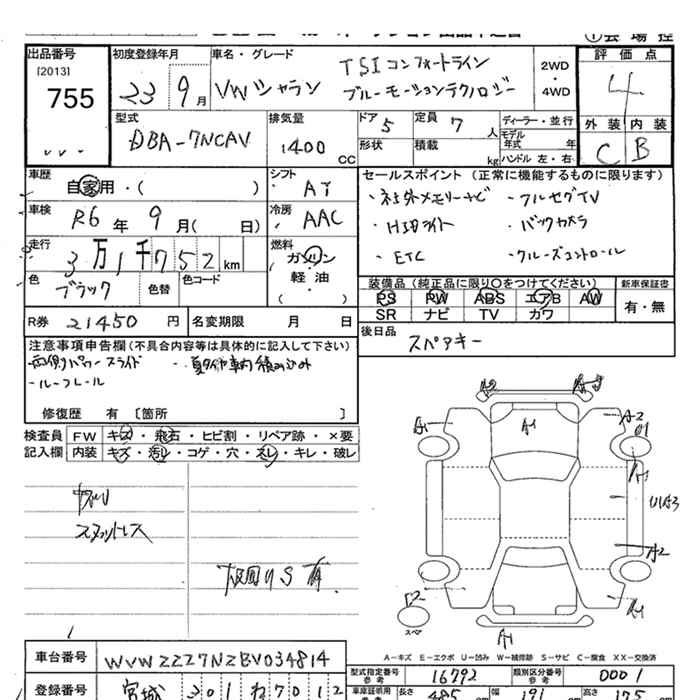 出品番号
[2013]
755
初度登録年月
23 9月
車名・グレード
VW シャラン
TSIコンフォートライン
ブルーモーションテクノロジー
2WD
・
4WD
評価点
4
外装 内装
C B
型式
DBA-7NCAV
排気量
1400 CC
ドア 5
定員 7 人
形状
積載 kg
ディーラー・並行
モデル年式 年式
ハンドル 左・右
車歴
自家用・( )
シフト
AT
車検
R6年 9月( 日)
冷房
AAC
走行
3万1千752km
燃料
ガソリン
軽・油
( )
色
ブラック
色替
色コード
セールスポイント(正常に機能するものに限ります)
・社外メモリーナビ ・フルセグTV
・HIDライト ・バックカメラ
・ETC ・クルーズコントロール
装備品(純正品に限り○をつけてください)
PS PW ABS エアB AW
SR ナビ TV カワ
新車保証書
有・無
R券 21450円
名変期限 月 日
後日品
スペアキー
注意事項申告欄(不具合内容等は具体的に記入して下さい)
両側パワースライド ・夏タイヤ車内積み込み
・ルーフレール
修復歴 有 〔箇所 〕
検査員
記入欄
FW キズ・飛石・ヒビ割・リペア跡・×要
内装 キズ・汚レ・コゲ・穴・スレ・キレ・破レ
スタットレス
A2
A1
A1
A-2
A1
A2
A1
A1
スペア
A-キズ E-エクボ U-凹み W-補修跡 S-サビ C-腐食 XX-交換済
車台番号
WVWZZZ7NZBV034814
登録番号
宮城 301 ね 7012
型式指定番号
参考
16792
類別区分番号
参考
0001
車庫証明用
参考
長さ 485 cm
幅 191 cm
高さ 175 cm